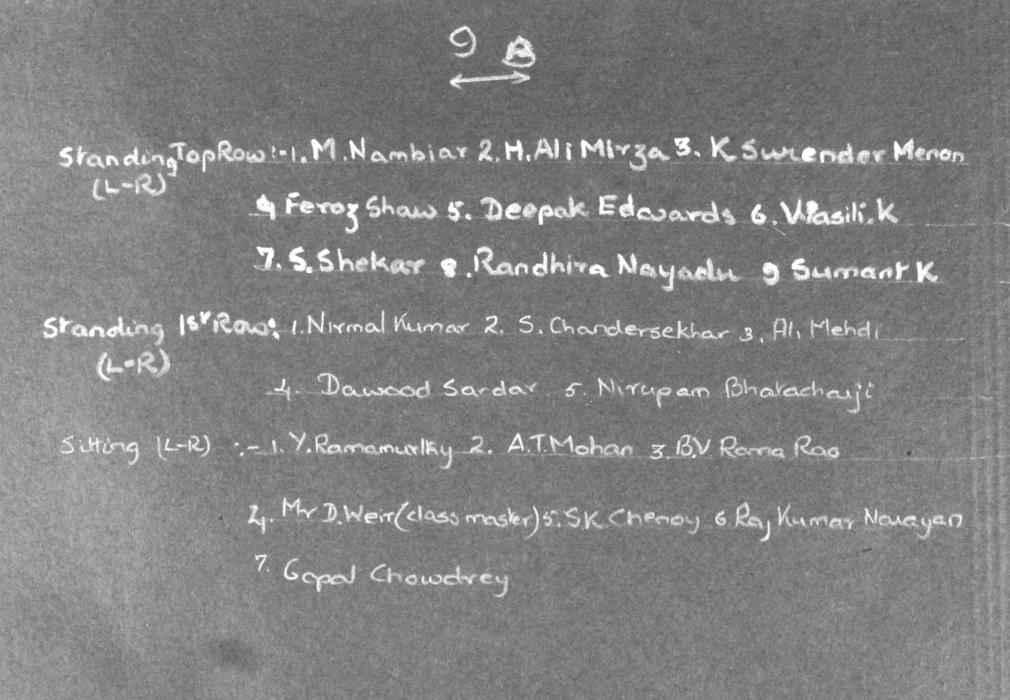 9 A
Standing Top Row :- 1. M. Nambiar 2. H. Ali Mirza 3. K Surender Menon
(L-R)
4 Feroz Shaw 5. Deepak Edwards 6. Wasili. K
7. S. Shekar 8. Randhira Nayadu 9 Sumant K
Standing 1st Row: 1. Nirmal Kumar 2. S. Chandersekhar 3. Ali Mehdi
(L-R)
4. Dawood Sardar 5. Nirupam Bhatacharji
Sitting (L-R) :- 1. Y. Ramamurthy 2. A.T. Mohan 3 B.V Rama Rao
4. Mr D. Weir (class master) 5. SK Chenoy 6 Raj Kumar Narayan
7. Gopal Chowdrey